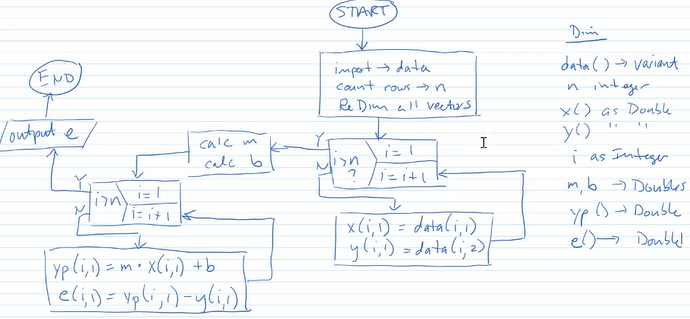 START
import → data
count rows → n
ReDim all vectors
i>n ?
i=1
i=i+1
Y
N
x(i,1) = data(i,1)
y(i,1) = data(i,2)
calc m
calc b
i>n
i=1
i=i+1
Y
N
yp(i,1) = m · x(i,1) + b
e(i,1) = yp(i,1) - y(i,1)
output e
END
Dim
data() → variant
n integer
x() as Double
y() " "
i as Integer
m, b → Doubles
yp() → Double
e() → Doubl